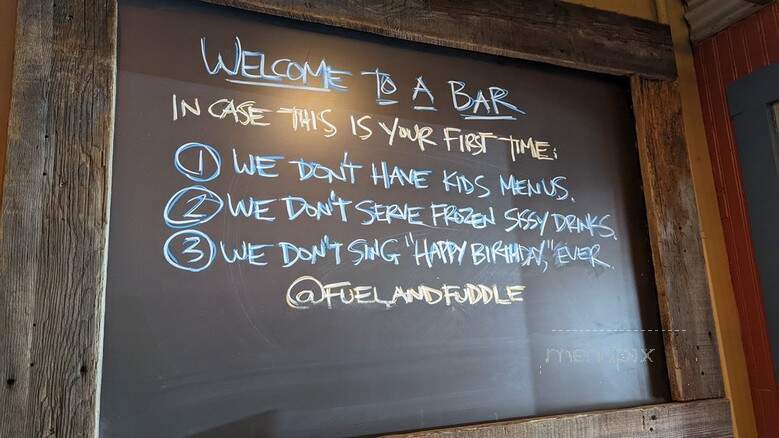 WELCOME TO A BAR
IN CASE THIS IS YOUR FIRST TIME:
① WE DON'T HAVE KIDS MENUS.
② WE DON'T SERVE FROZEN SISSY DRINKS.
③ WE DON'T SING "HAPPY BIRTHDAY," EVER.
@FUELANDFUDDLE
menupix